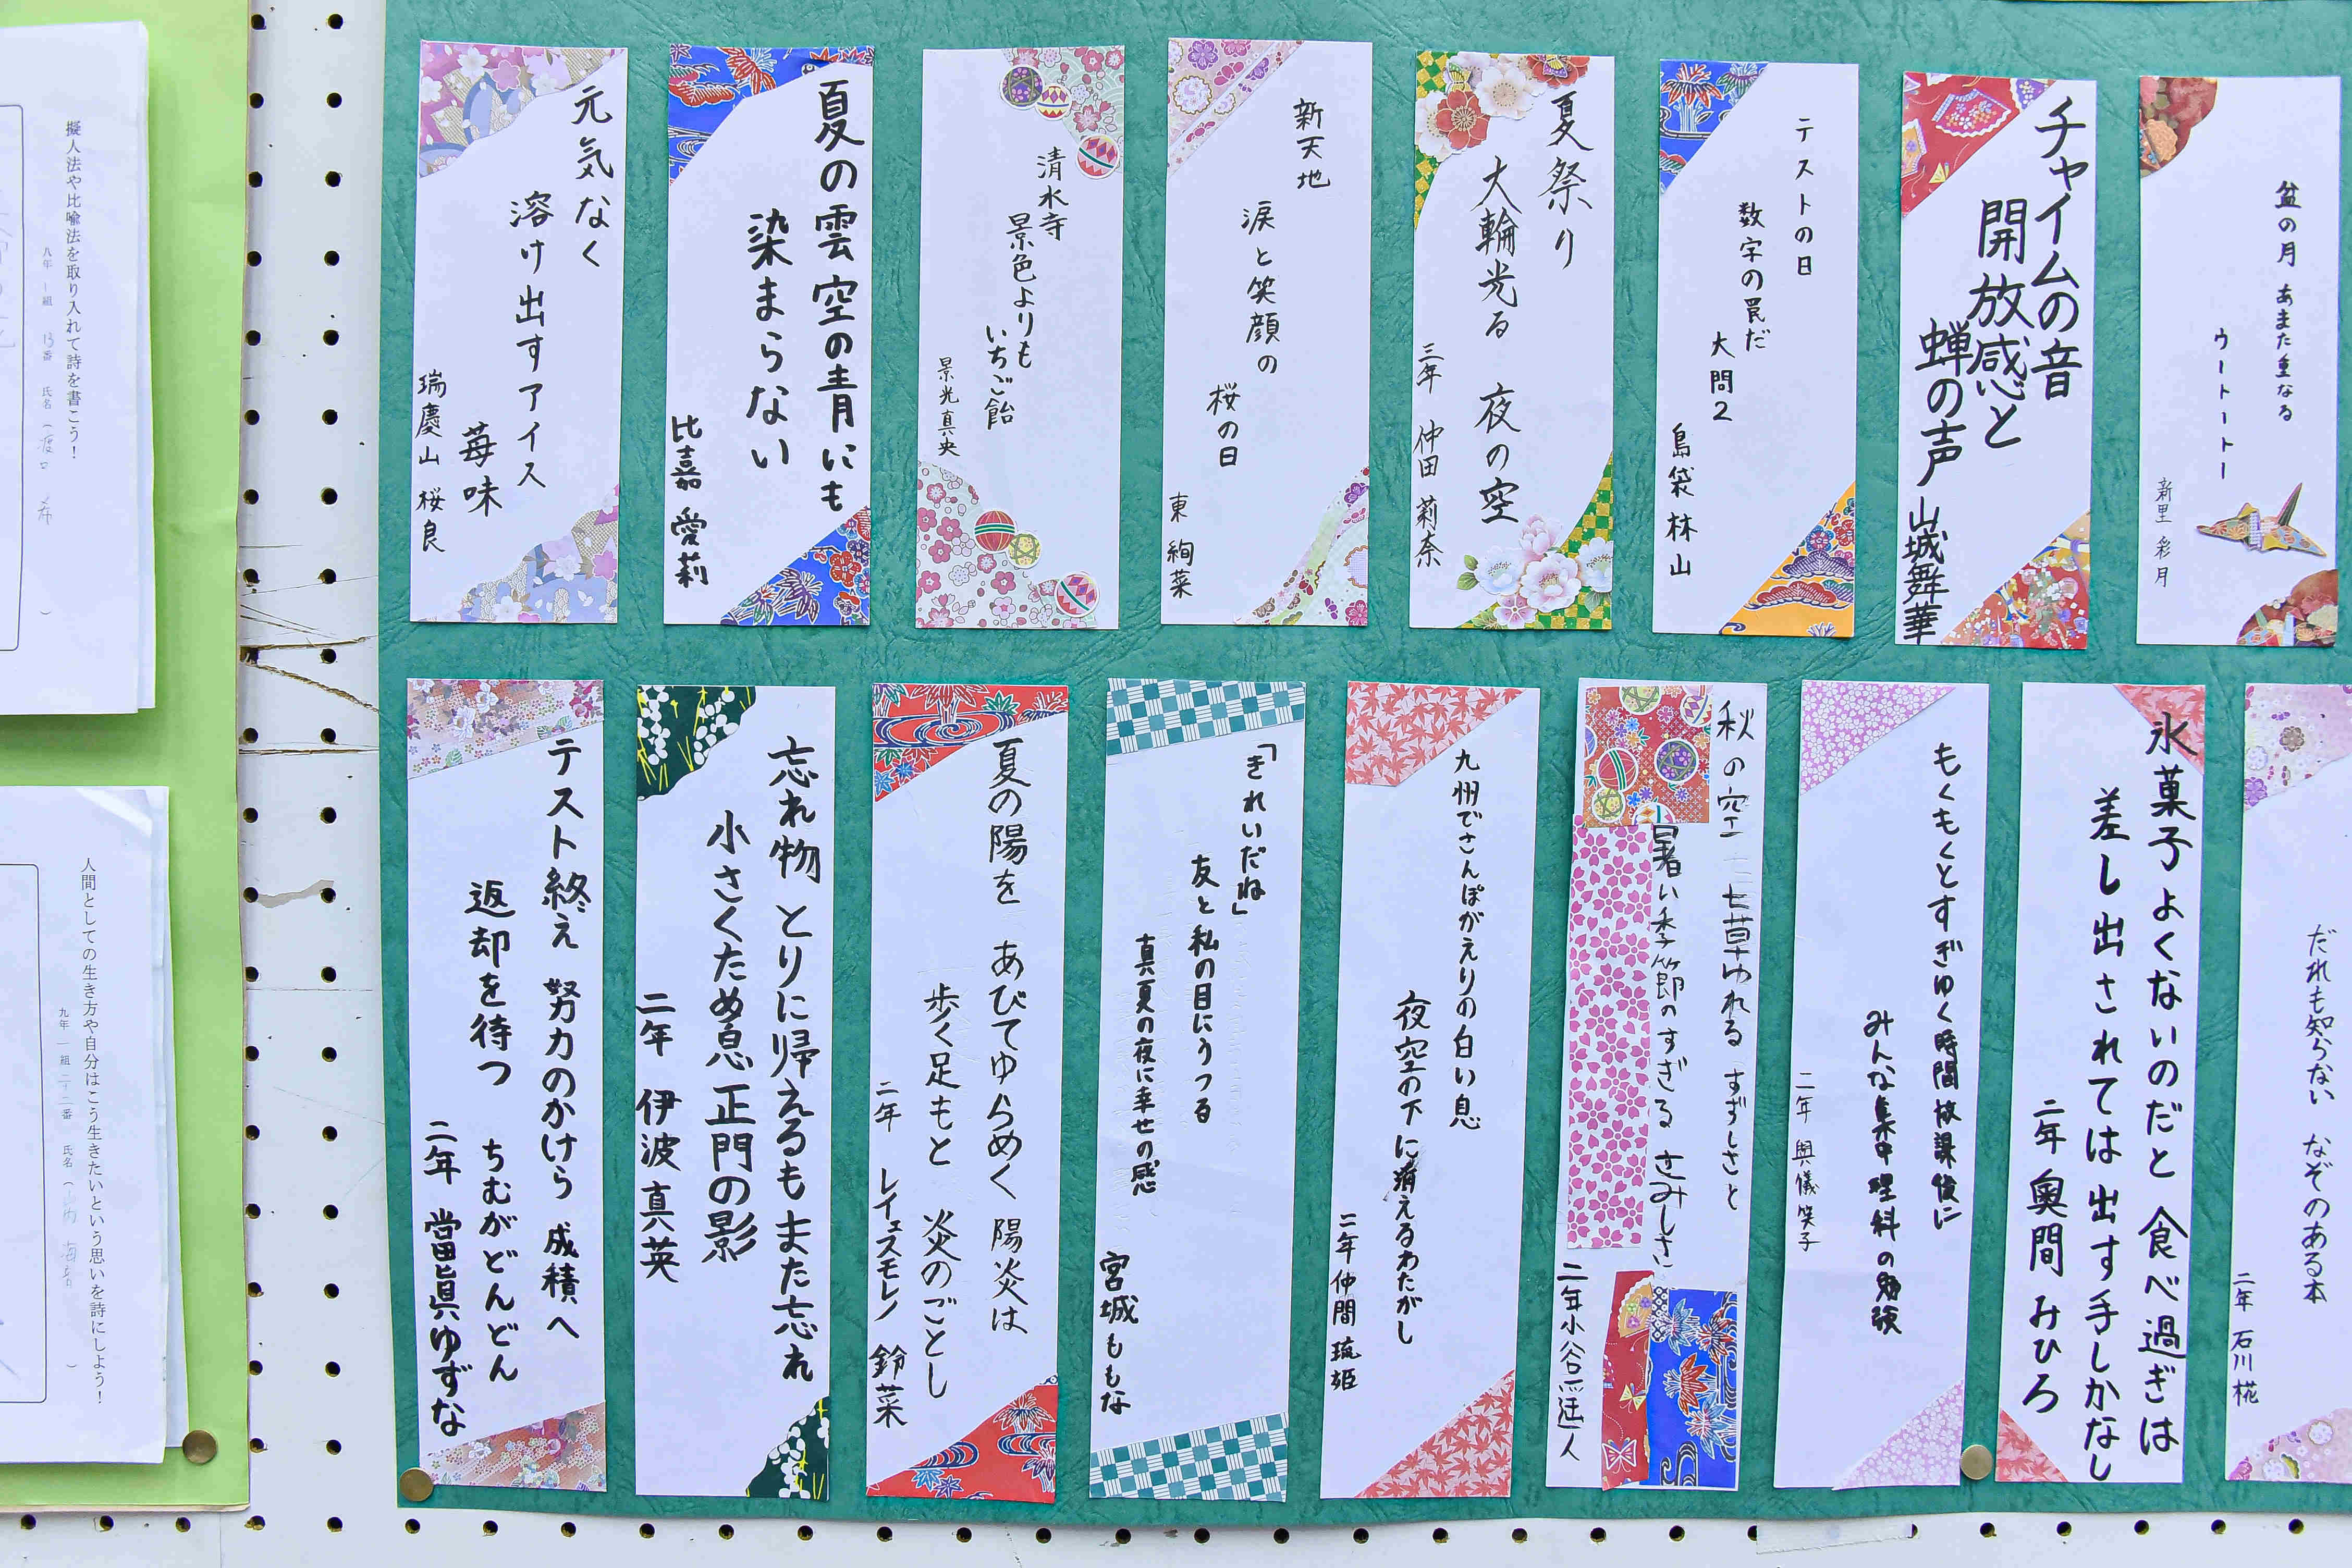 盆の月 あまた重なる
ウートートー
新里 彩月
チャイムの音
開放感と
蝉の声
山城舞華
テストの日
数字の罠だ
大問2
島袋 林山
夏祭り
大輪光る 夜の空
三年 仲田 莉奈
新天地
涙と笑顔の
桜の日
東 絢菜
清水寺
景色よりも
いちご飴
景光真央
夏の雲空の青にも
染まらない
比嘉 愛莉
元気なく
溶け出すアイス
苺味
瑞慶山 桜良
擬人法や比喩法を取り入れて詩を書こう!
八年 1組 13番 氏名(渡口 希)
だれも知らない なぞのある本
二年 石川 椛
氷菓子よくないのだと 食べ過ぎは
差し出されては出す手しかなし
二年 奥間 みひろ
もくもくとすぎゆく時間放課後に
みんな集中理科の勉強
二年 與儀 笑子
秋の空 七草ゆれる すずしさと
暑い季節のすぎる さみしさに
二年 小谷 人
九州でさんぽがえりの白い息
夜空の下に消えるわたがし
二年 仲間 琉姫
「きれいだね」
友と私の目にうつる
真夏の夜に幸せの感
宮城ももな
夏の陽を あびてゆらめく 陽炎は
歩く足もと 炎のごとし
二年 レイエスモレノ 鈴菜
忘れ物 とりに帰えるもまた忘れ
小さくため息 正門の影
二年 伊波 真英
テスト終え 努力のかけら 成積へ
返却を待つ ちむがどんどん
二年 當眞ゆずな
人間としての生き方や自分はこう生きたいという思いを詩にしよう!
九年 一組 二十二番 氏名( )